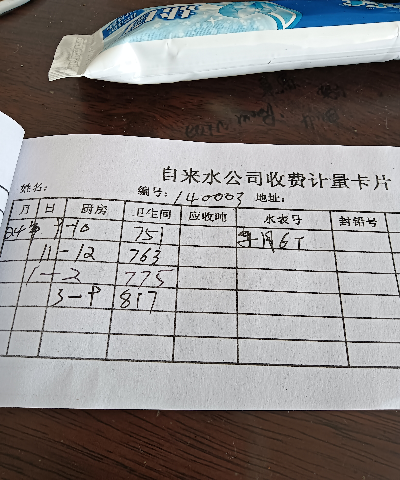 自来水公司收费计量卡片
姓名: 编号: 140003 地址:
月 日 厨房 卫生间 应收吨 水表号 封铅号
24年 9-10 751
11-12 763
1-2 775
3-4 817